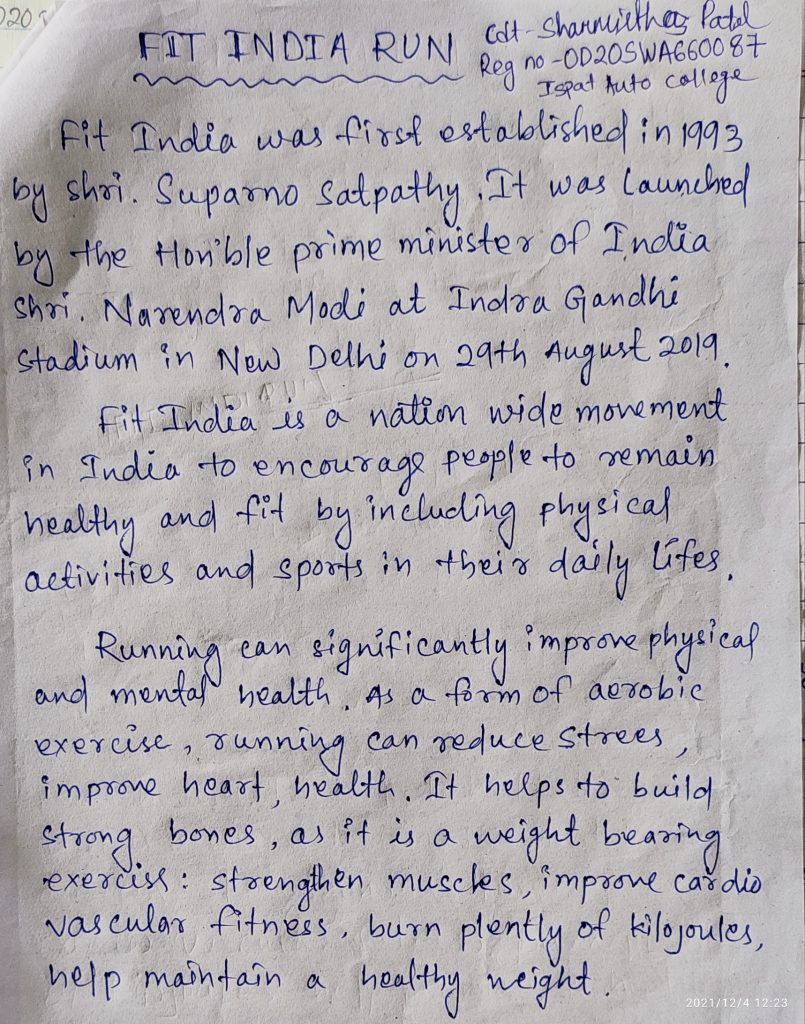 FIT INDIA RUN
Cdt - Sharmistha Patel
Reg no - OD20SWA660087
Ispat Auto college
Fit India was first established in 1993
by shri. Suparno Satpathy. It was Launched
by the Hon'ble prime minister of India
Shri. Narendra Modi at Indra Gandhi
Stadium in New Delhi on 29th August 2019.
Fit India is a nation wide movement
in India to encourage people to remain
healthy and fit by including physical
activities and sports in their daily lifes.
Running can significantly improve physical
and mental health. As a form of aerobic
exercise, running can reduce strees,
improve heart, health. It helps to build
strong bones, as it is a weight bearing
exerciss: strengthen muscles, improve cardio
vascular fitness, burn plently of kilojoules,
help maintain a healthy weight.
2021/12/4 12:23